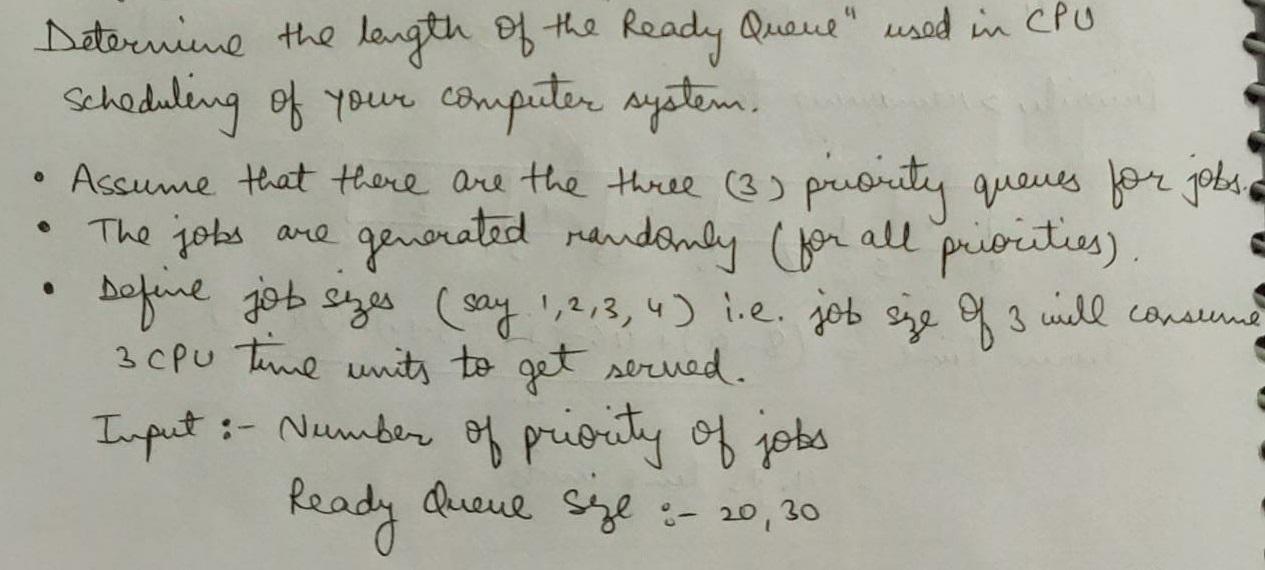 Determine the length of the Ready Queue" used in CPU
scheduling of your computer system.
• Assume that there are the three (3) priority queues for jobs.
• The jobs are generated randomly (for all priorities).
• Define job sizes (say 1,2,3,4) i.e. job size of 3 will consume
3 CPU time units to get served.
Input :- Number of priority of jobs
Ready Queue Size :- 20,30